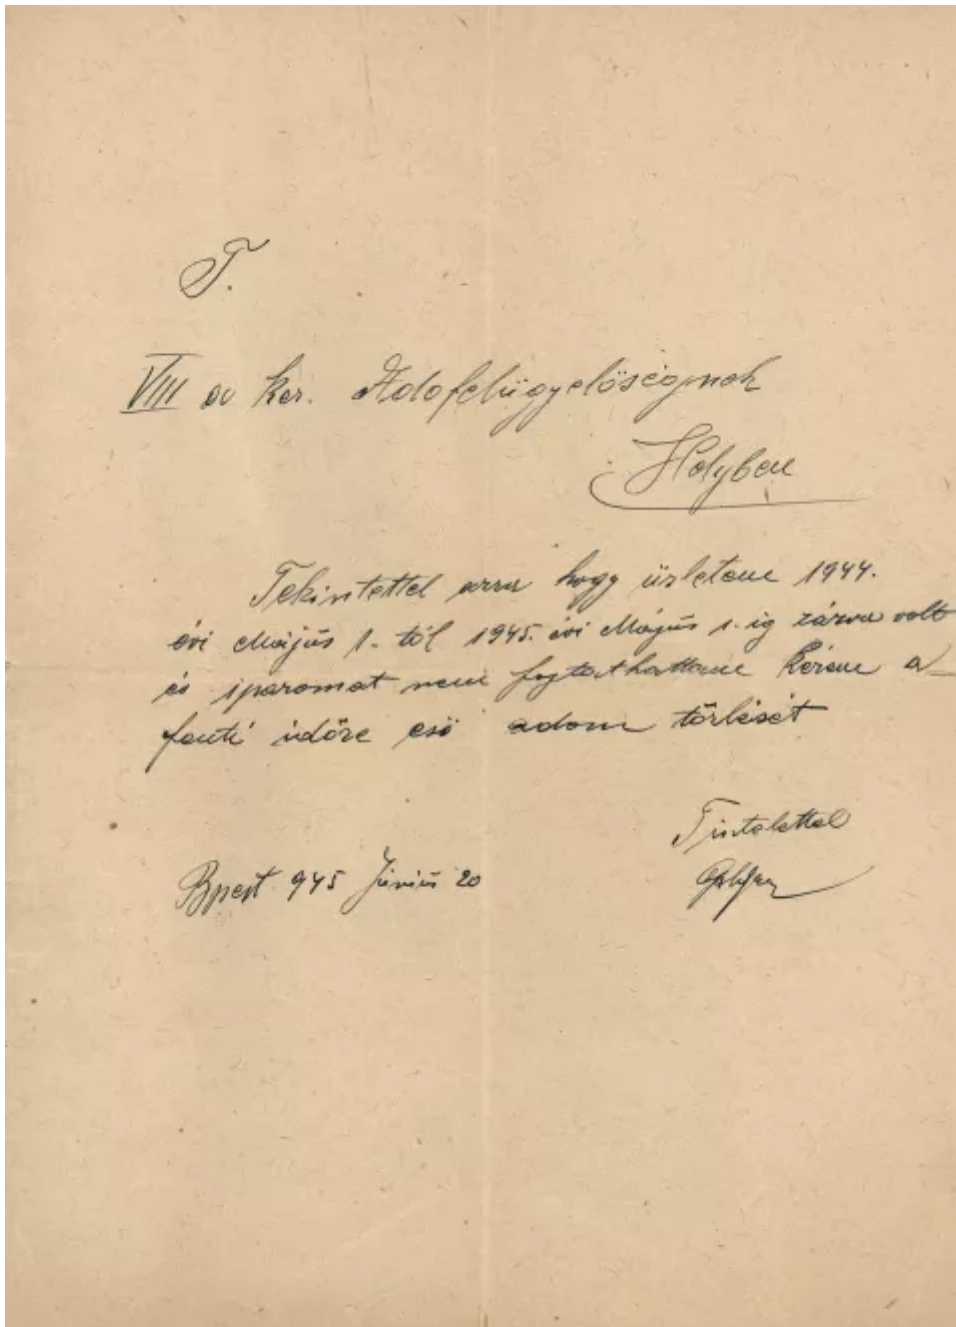 T.
VIII ev ker. Adofelügyelöségnek
Helyben
Tekintettel arra hogy üzletem 1944.
évi Május 1. től 1945. évi Május 1. ig zárva volt
és iparomat nem fojtathattam kérem a
fenti időre eső adom törlését
Tisztelettel
Bpest 945 Június 20